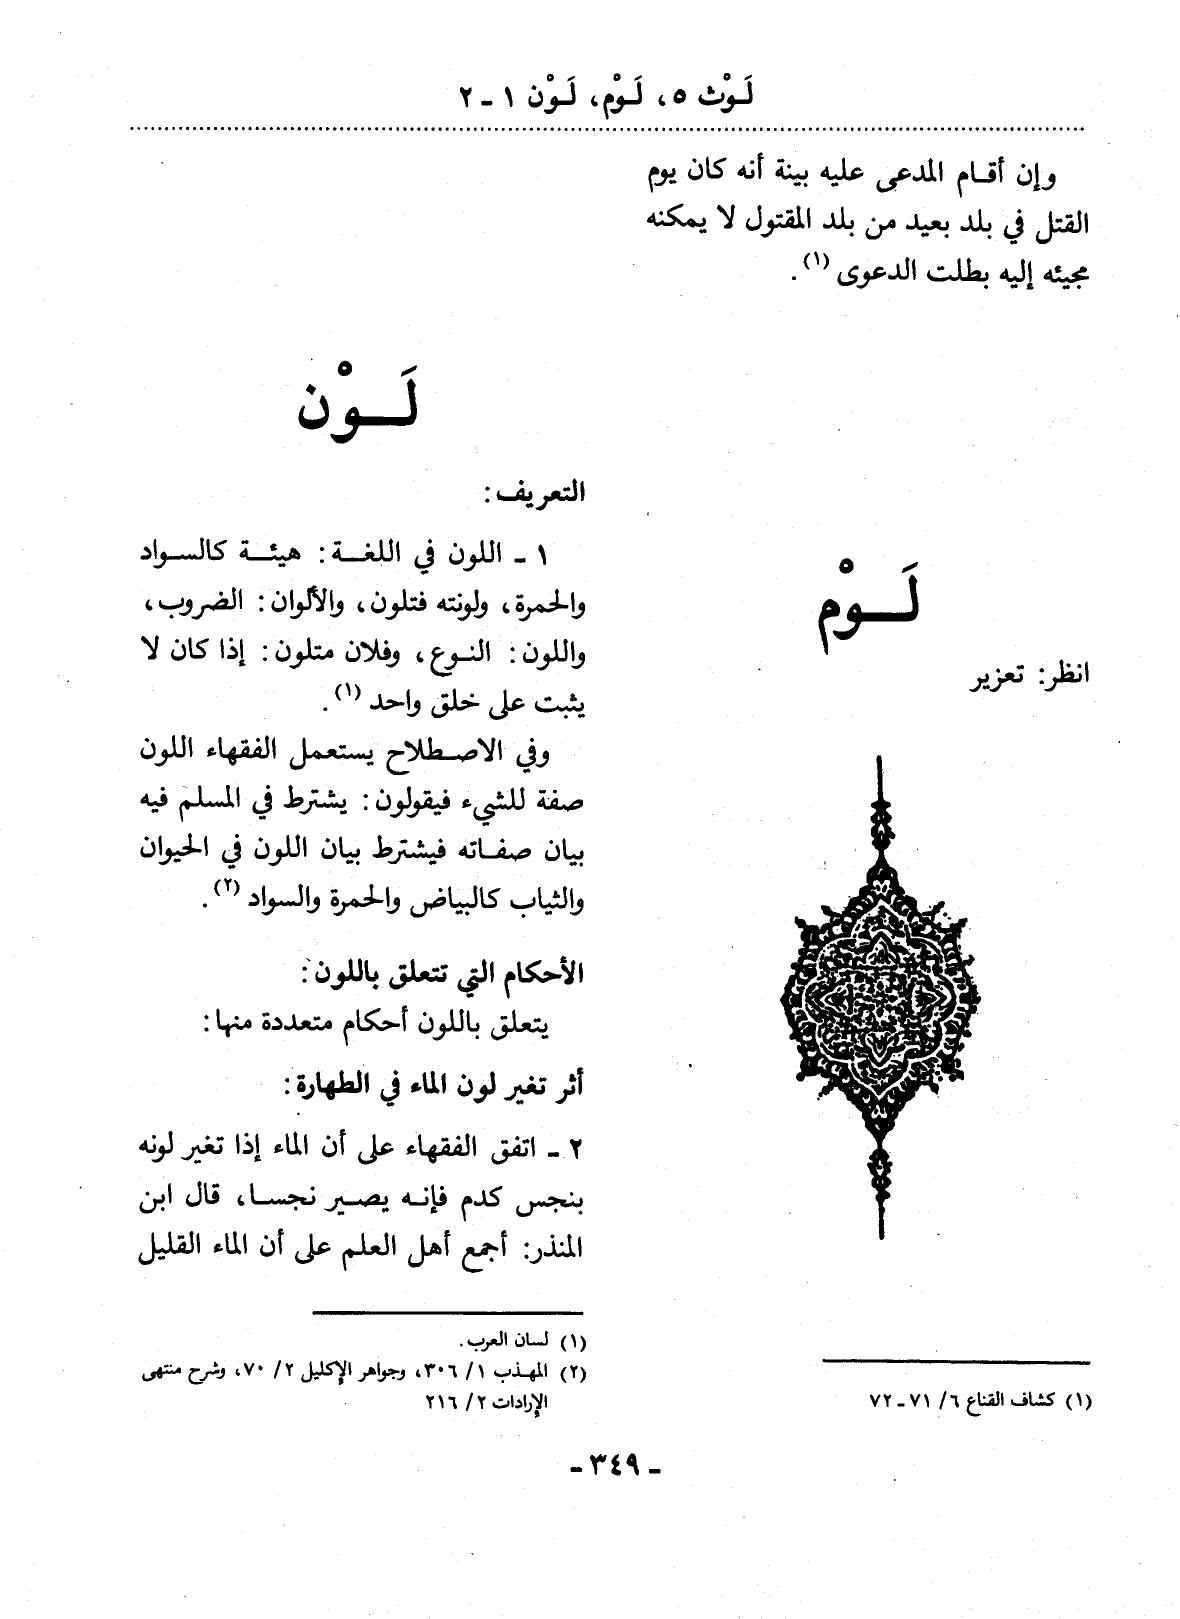 لَـوْث ٥، لَـوْم، لَـوْن ١ ـ ٢
وإن أقـام المدعى عليه بينة أنه كان يوم
القتل في بلد بعيد من بلد المقتول لا يمكنه
مجيئه إليه بطلت الدعوى (١) .
لَــوْم
انظر: تعزير
(١) كشاف القناع ٦/ ٧١ ـ ٧٢
لَــوْن
التعريف :
١ ـ اللون في اللغــة : هيئــة كالســواد
والحمرة، ولونته فتلون، والألوان : الضروب،
واللون : النـوع، وفلان متلون : إذا كان لا
يثبت على خلق واحد (١) .
وفي الاصـطلاح يستعمل الفقهاء اللون
صفة للشيء فيقولون : يشترط في المسلم فيه
بيان صفـاته فيشترط بيان اللون في الحيوان
والثياب كالبياض والحمرة والسواد (٢) .
الأحكام التي تتعلق باللون :
يتعلق باللون أحكام متعددة منها :
أثر تغير لون الماء في الطهارة :
٢ ـ اتفق الفقهاء على أن الماء إذا تغير لونه
بنجس كدم فإنـه يصـير نجسـا، قال ابن
المنذر: أجمع أهل العلم على أن الماء القليل
(١) لسان العرب .
(٢) المهـذب ١/ ٣٠٦، وجواهر الإكليل ٢/ ٧٠، وشرح منتهى
الإرادات ٢/ ٢١٦
ـ ٣٤٩ ـ